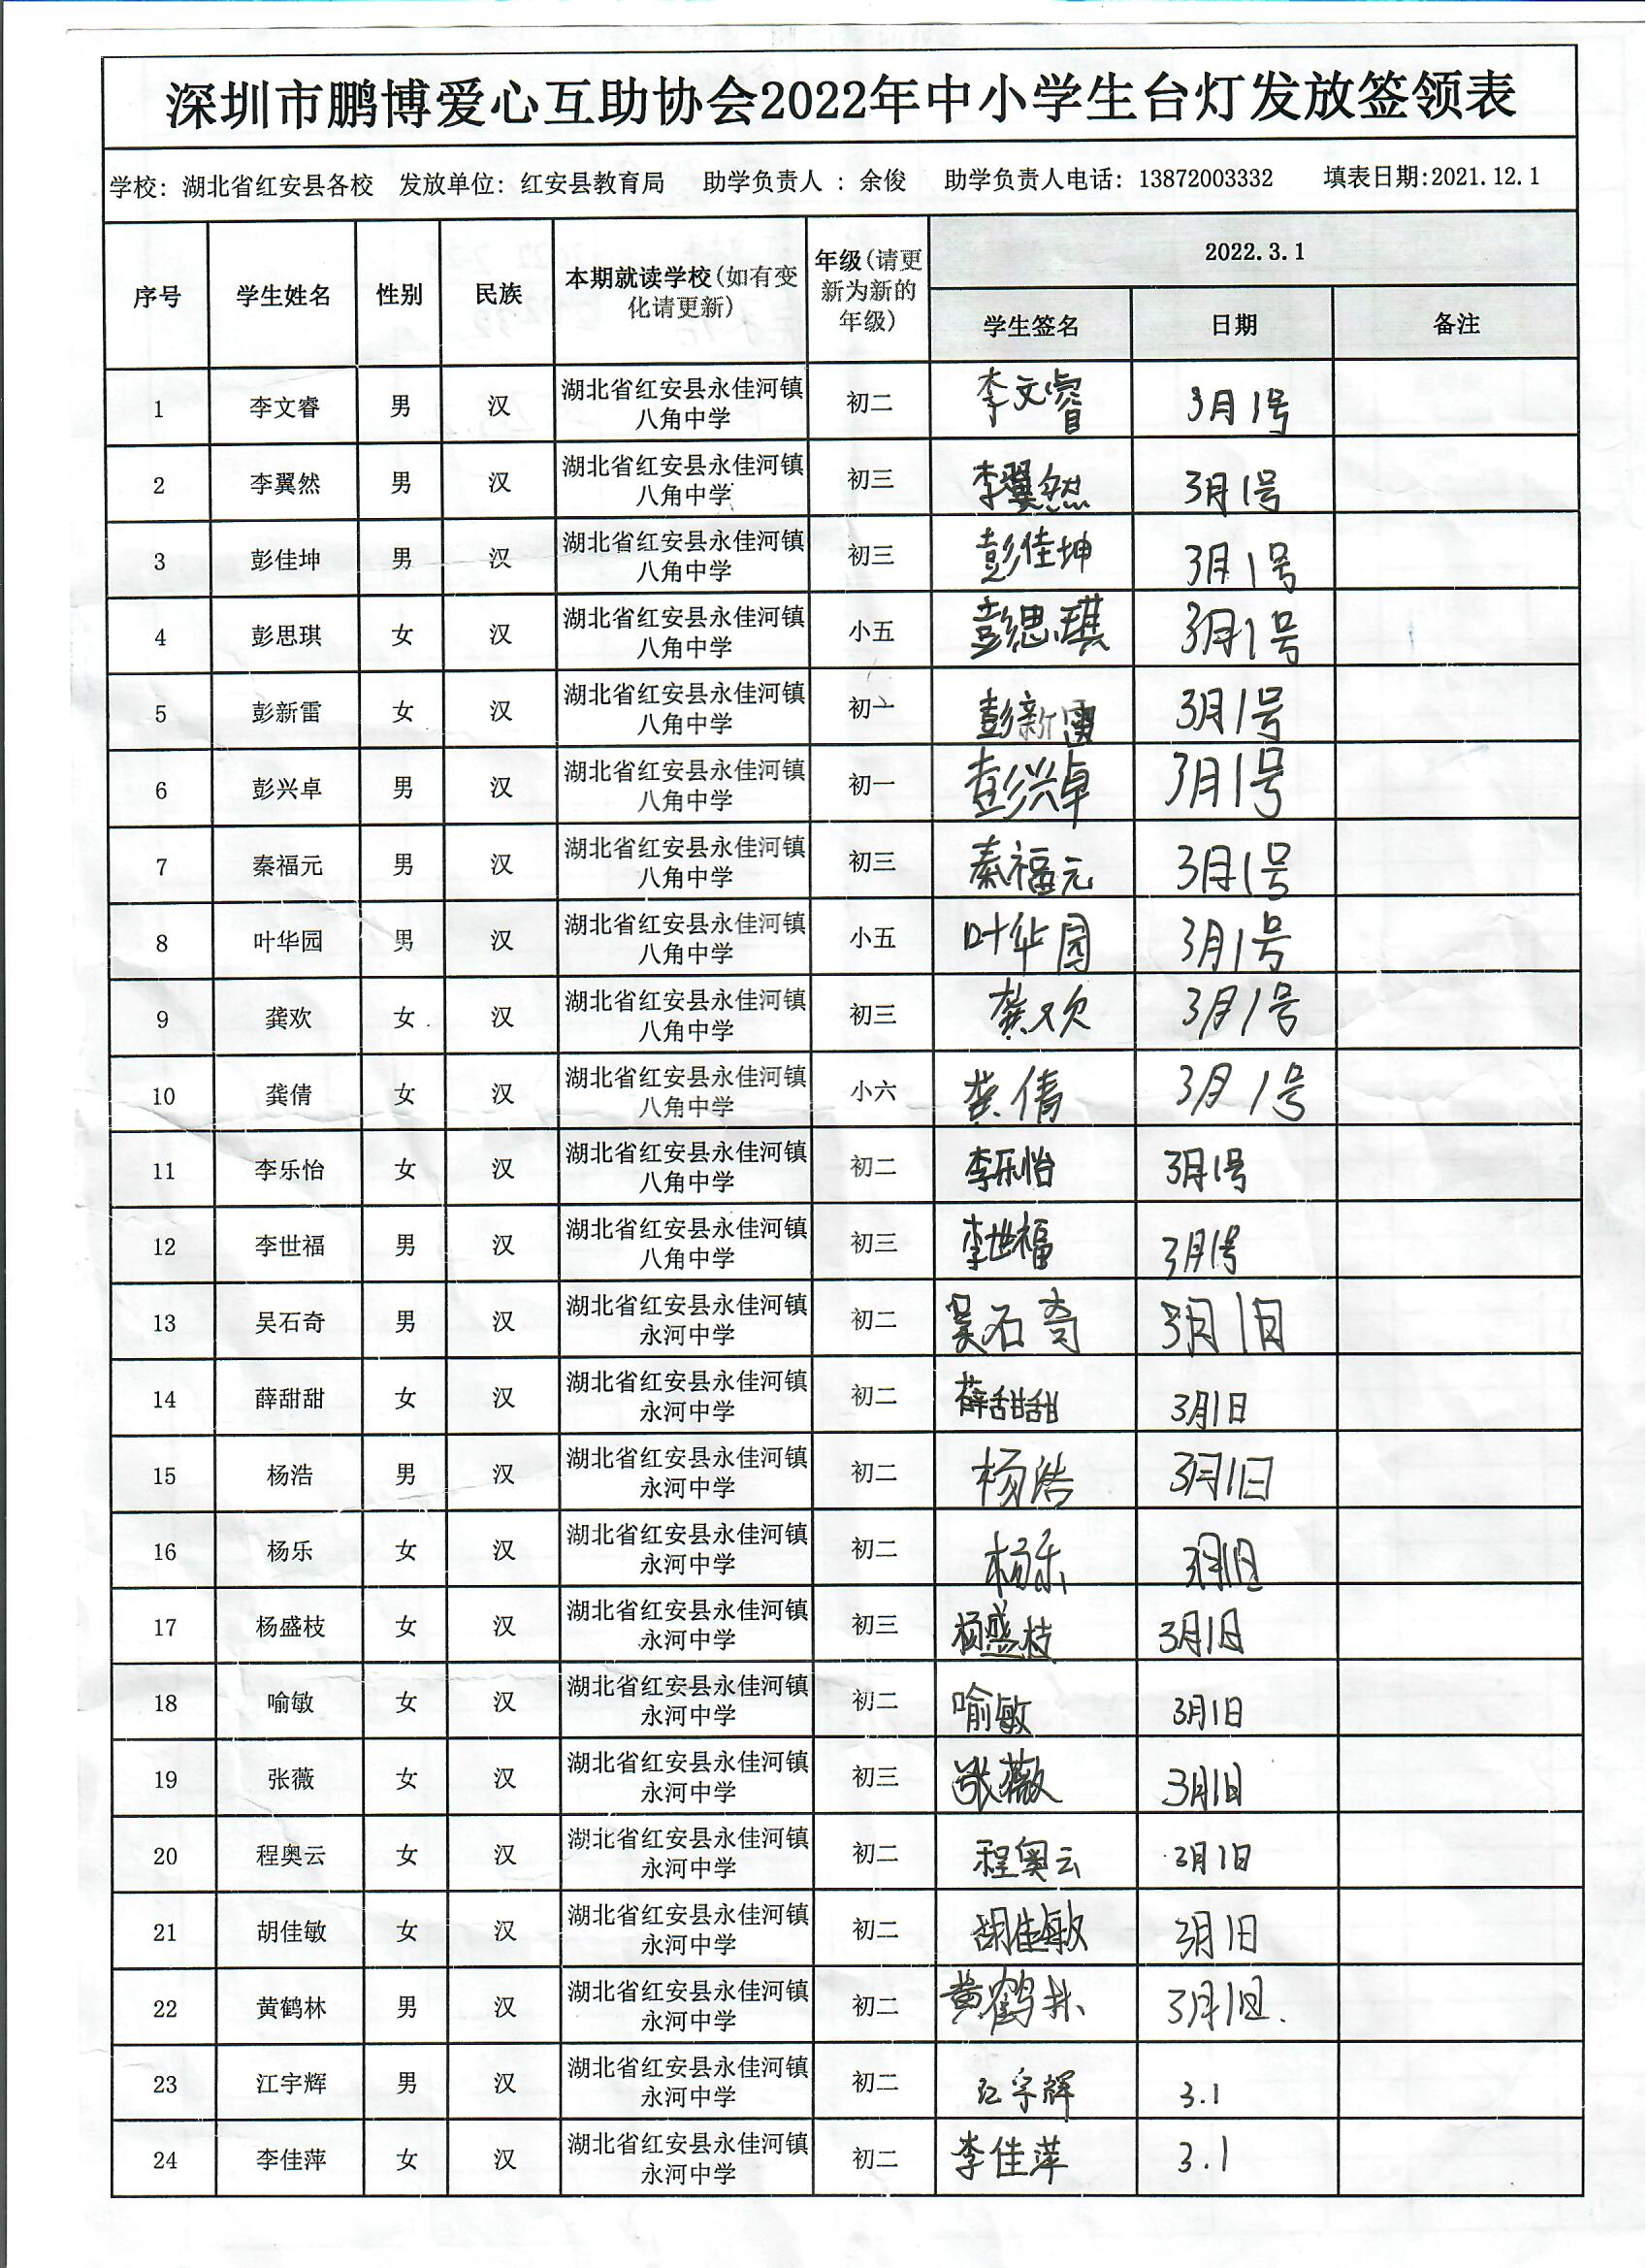 深圳市鹏博爱心互助协会2022年中小学生台灯发放签领表
学校：湖北省红安县各校 发放单位：红安县教育局 助学负责人：余俊 助学负责人电话：13872003332 填表日期:2021.12.1
序号 学生姓名 性别 民族 本期就读学校(如有变化请更新) 年级(请更新为新的年级) 2022.3.1
学生签名 日期 备注
1 李文睿 男 汉 湖北省红安县永佳河镇八角中学 初二 李文睿 3月1号
2 李翼然 男 汉 湖北省红安县永佳河镇八角中学 初三 李翼然 3月1号
3 彭佳坤 男 汉 湖北省红安县永佳河镇八角中学 初三 彭佳坤 3月1号
4 彭思琪 女 汉 湖北省红安县永佳河镇八角中学 小五 彭思琪 3月1号
5 彭新雷 女 汉 湖北省红安县永佳河镇八角中学 初一 彭新雷 3月1号
6 彭兴卓 男 汉 湖北省红安县永佳河镇八角中学 初一 彭兴卓 3月1号
7 秦福元 男 汉 湖北省红安县永佳河镇八角中学 初三 秦福元 3月1号
8 叶华园 男 汉 湖北省红安县永佳河镇八角中学 小五 叶华园 3月1号
9 龚欢 女 汉 湖北省红安县永佳河镇八角中学 初三 龚欢 3月1号
10 龚倩 女 汉 湖北省红安县永佳河镇八角中学 小六 龚倩 3月1号
11 李乐怡 女 汉 湖北省红安县永佳河镇八角中学 初二 李乐怡 3月1号
12 李世福 男 汉 湖北省红安县永佳河镇八角中学 初三 李世福 3月1号
13 吴石奇 男 汉 湖北省红安县永佳河镇永河中学 初二 吴石奇 3月1日
14 薛甜甜 女 汉 湖北省红安县永佳河镇永河中学 初二 薛甜甜 3月1日
15 杨浩 男 汉 湖北省红安县永佳河镇永河中学 初二 杨浩 3月1日
16 杨乐 女 汉 湖北省红安县永佳河镇永河中学 初二 杨乐 3月1日
17 杨盛枝 女 汉 湖北省红安县永佳河镇永河中学 初三 杨盛枝 3月1日
18 喻敏 女 汉 湖北省红安县永佳河镇永河中学 初二 喻敏 3月1日
19 张薇 女 汉 湖北省红安县永佳河镇永河中学 初三 张薇 3月1日
20 程奥云 女 汉 湖北省红安县永佳河镇永河中学 初二 程奥云 3月1日
21 胡佳敏 女 汉 湖北省红安县永佳河镇永河中学 初二 胡佳敏 3月1日
22 黄鹤林 男 汉 湖北省红安县永佳河镇永河中学 初二 黄鹤林 3月1日.
23 江宇辉 男 汉 湖北省红安县永佳河镇永河中学 初二 江宇辉 3.1
24 李佳萍 女 汉 湖北省红安县永佳河镇永河中学 初二 李佳萍 3.1